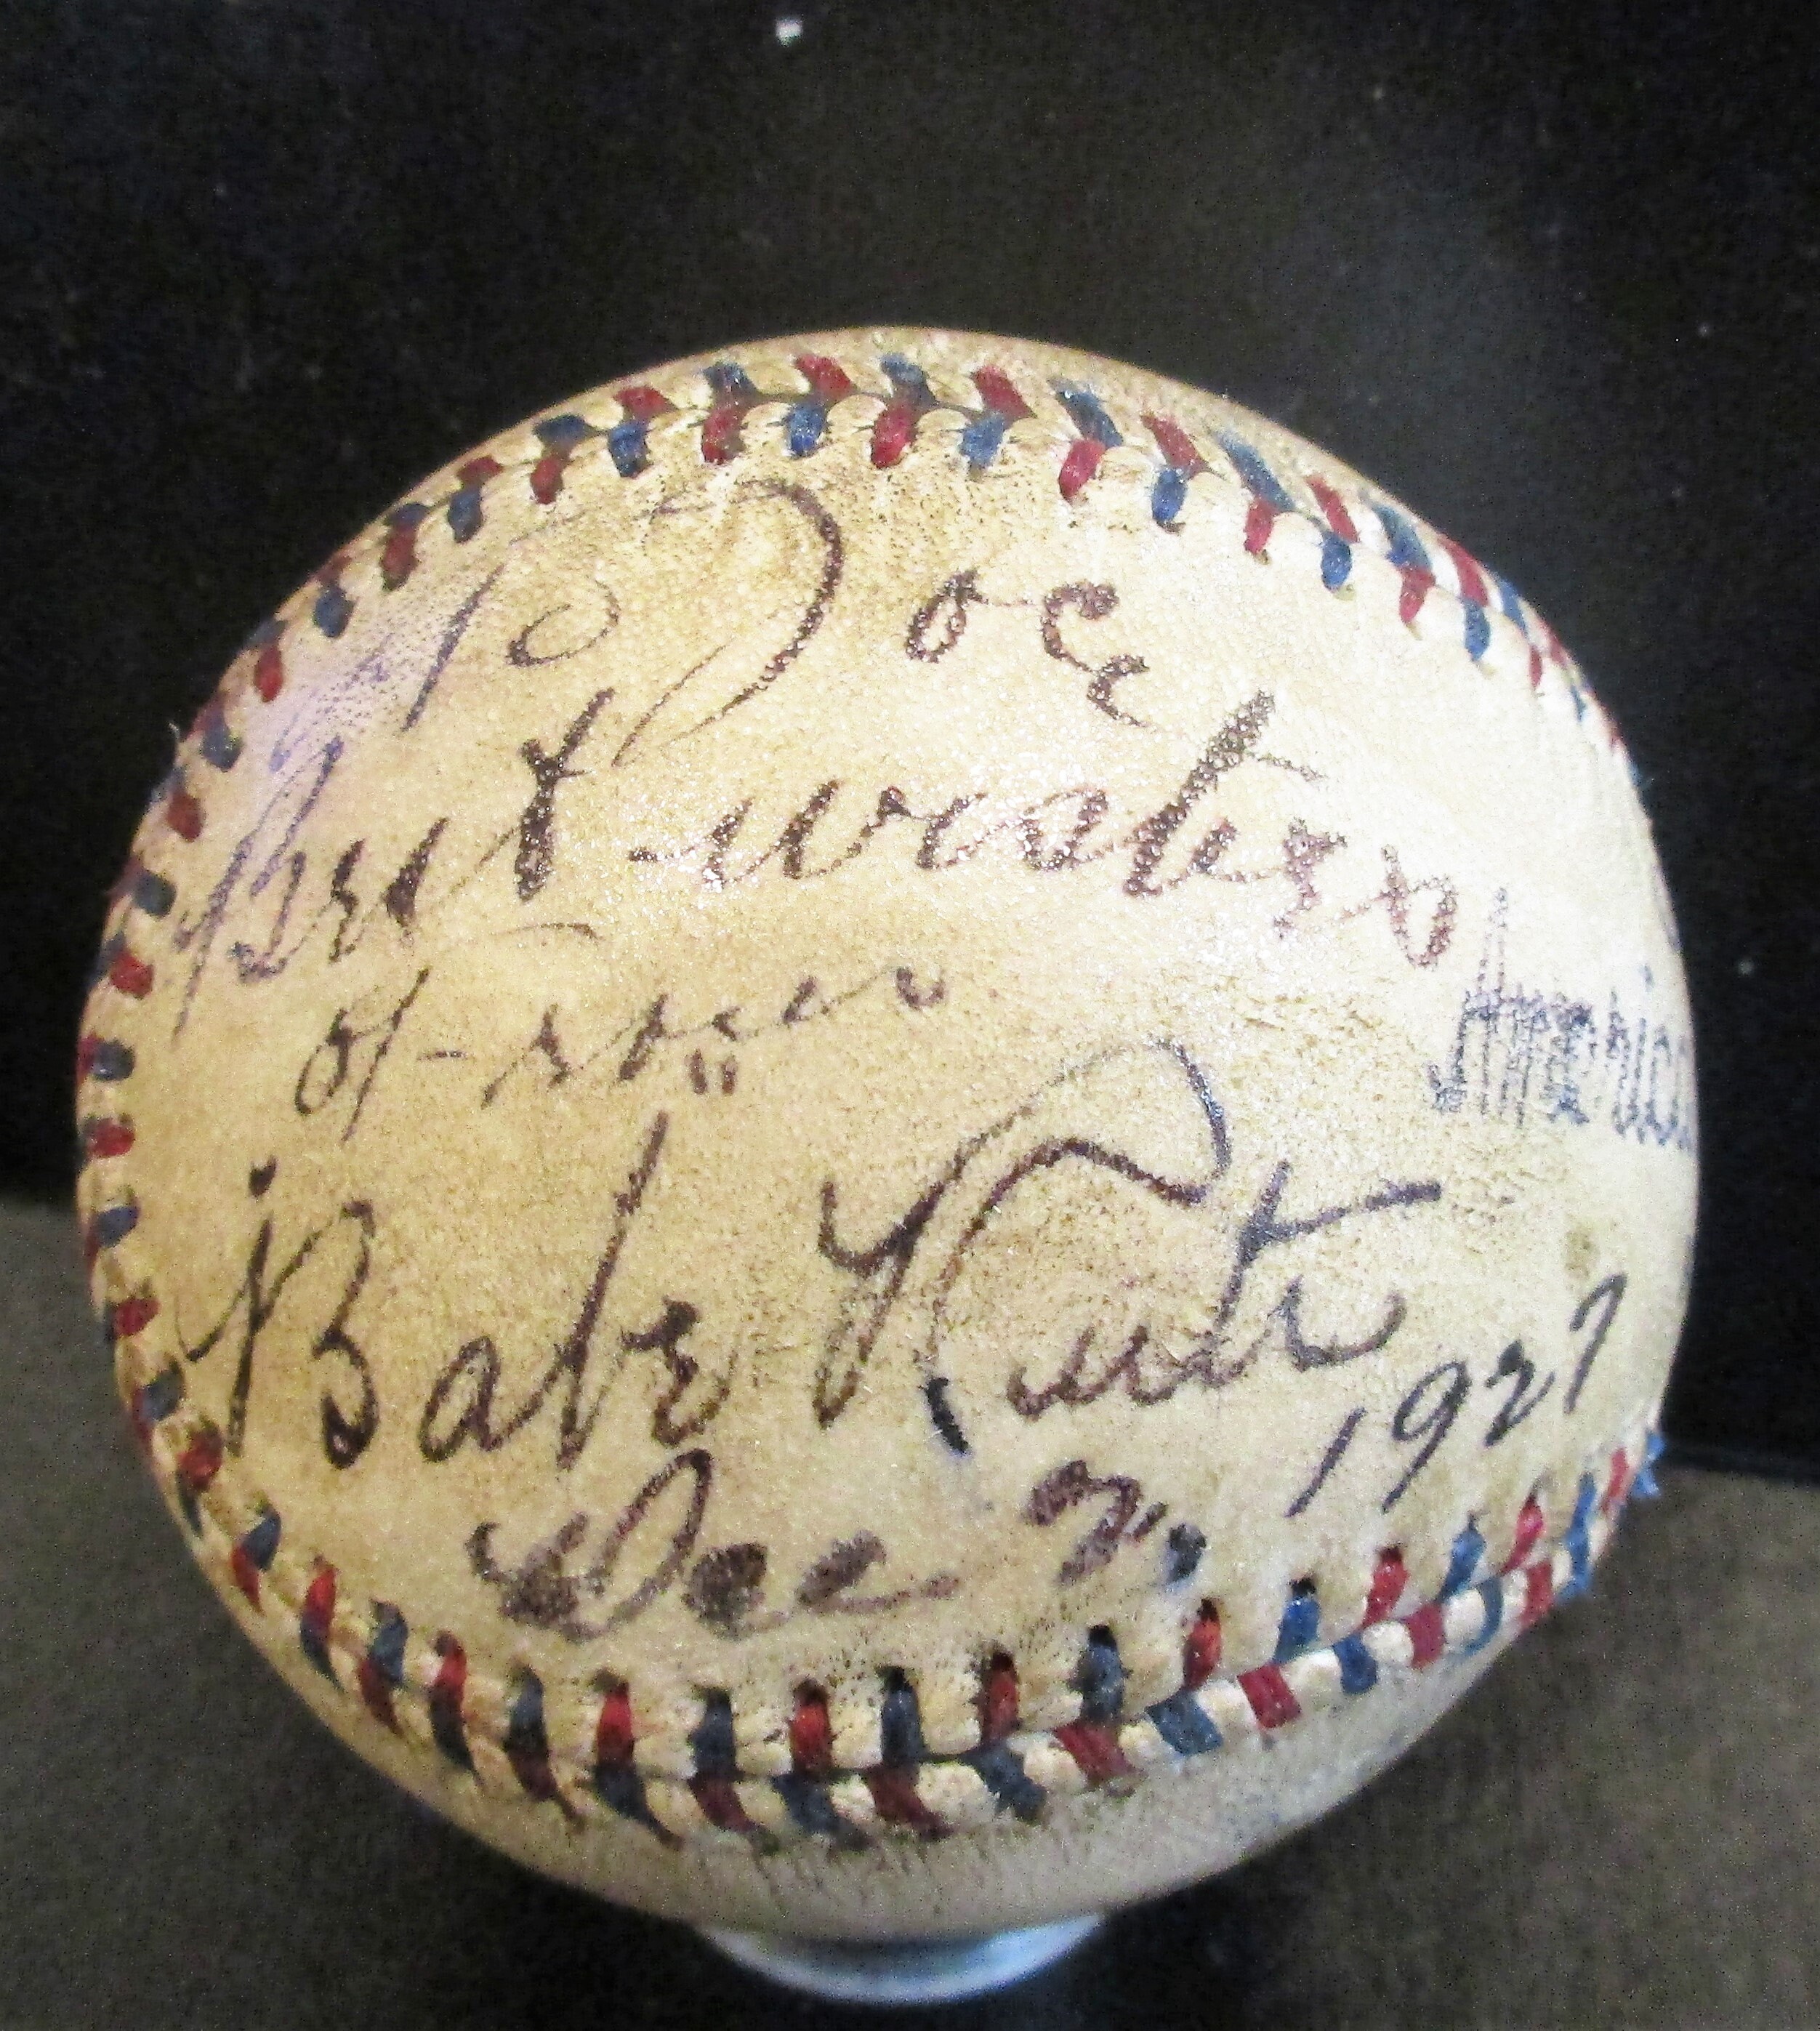 To Doc
Best
of
Babe Ruth
Dec 1927
American